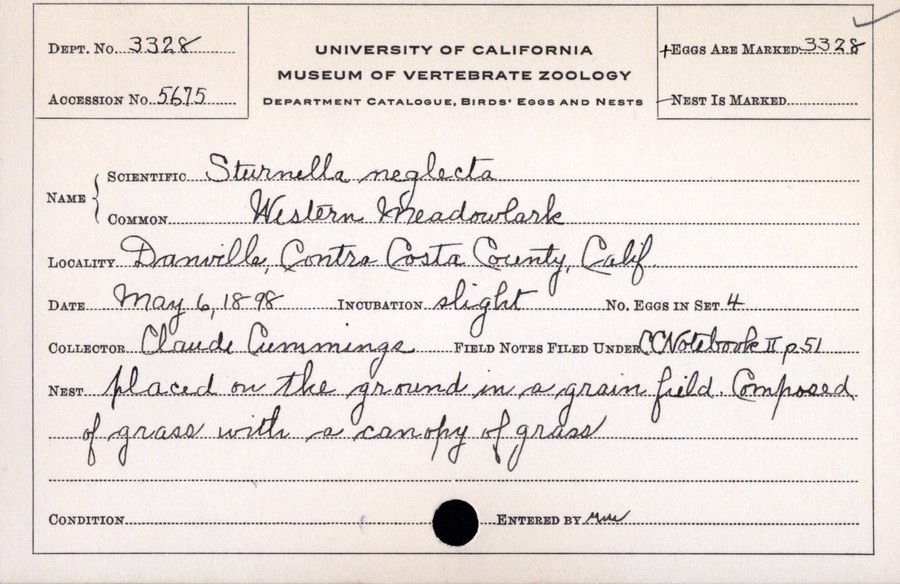 DEPT. NO. 3328
ACCESSION NO. 5675
UNIVERSITY OF CALIFORNIA
MUSEUM OF VERTEBRATE ZOOLOGY
DEPARTMENT CATALOGUE, BIRDS' EGGS AND NESTS
+EGGS ARE MARKED 3328
NEST IS MARKED
NAME
SCIENTIFIC Sturnella neglecta
COMMON Western Meadowlark
LOCALITY Danville, Contra Costa County, Calif
DATE May 6, 1898 INCUBATION slight NO. EGGS IN SET 4
COLLECTOR Claude Cummings FIELD NOTES FILED UNDER CC Notebook II p. 51
NEST placed on the ground in a grain field. Composed
of grass with a canopy of grass
CONDITION ENTERED BY